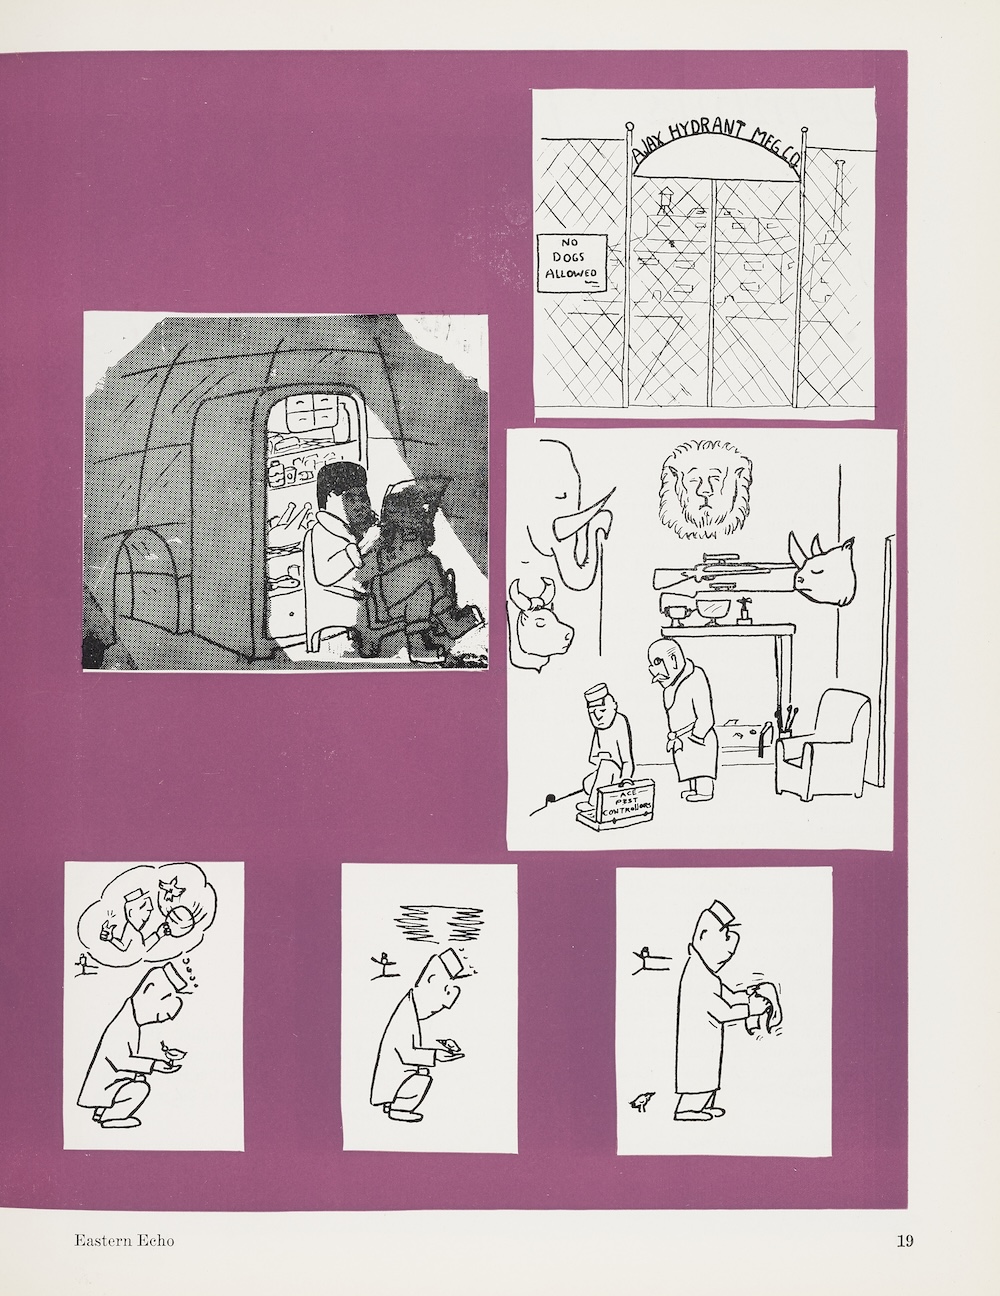 AJAX HYDRANT MFG CO.
NO
DOGS
ALLOWED
ACE
PEST
CONTROllORS
Eastern Echo
19